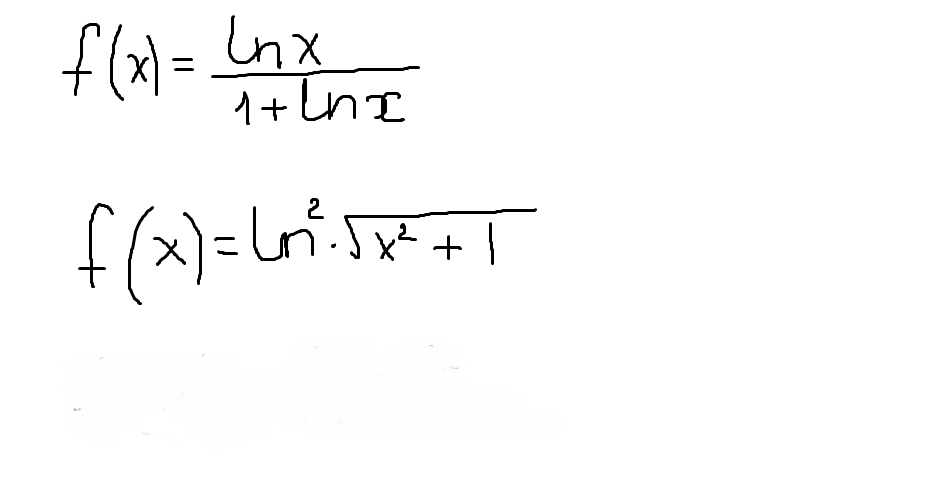 f(x) = ln x / 1 + ln x
f(x) = ln² · √x² + 1